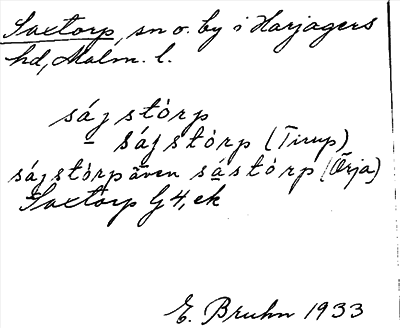 Saxtorp, sn o. by i Harjagers
hd, Malm. l.
sájstòrp
– sájstòrp (Tirup)
sájstòrp även sástòrp (Örja)
Saxtorp G4, ek
E. Bruhn 1933